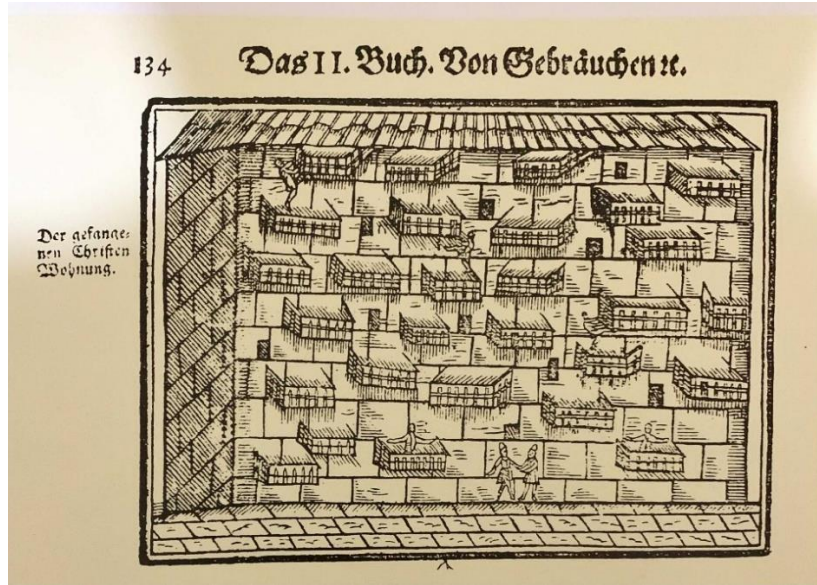 134 Das II. Buch. Von Gebräuchen ꝛc.
Der gefange⸗
nen Christen
Wohnung.